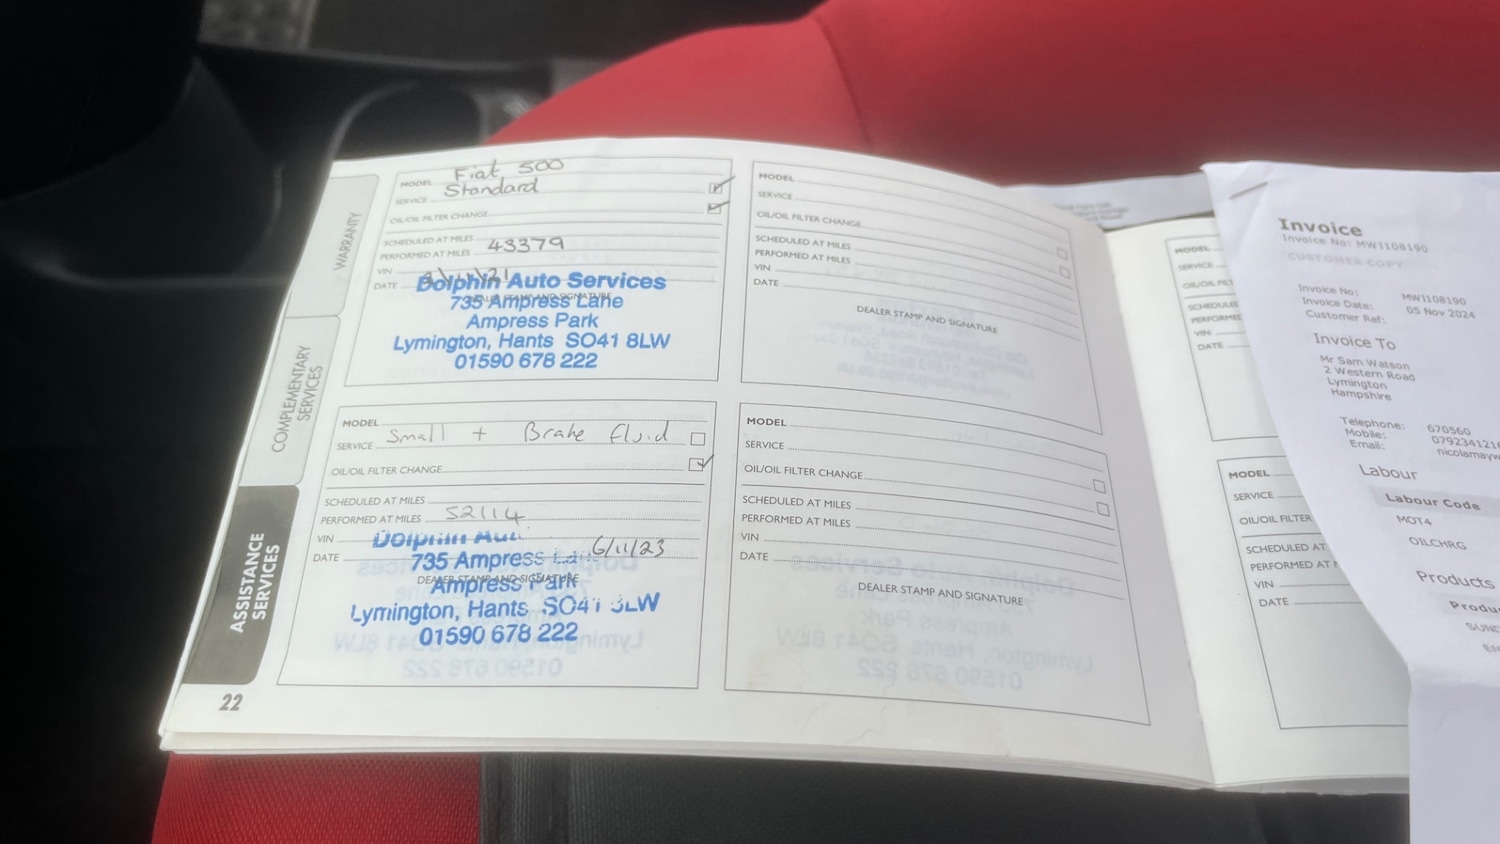 WARRANTY
COMPLEMENTARY
SERVICES
ASSISTANCE
SERVICES
22
MODEL Fiat 500
SERVICE Standard
OIL/OIL FILTER CHANGE
SCHEDULED AT MILES
PERFORMED AT MILES 43379
VIN
DATE
DEALER STAMP AND SIGNATURE
Dolphin Auto Services
735 Ampress Lane
Ampress Park
Lymington, Hants SO41 8LW
01590 678 222
MODEL
SERVICE Small + Brake Fluid
OIL/OIL FILTER CHANGE
SCHEDULED AT MILES
PERFORMED AT MILES 52114
VIN
DATE 6/11/23
DEALER STAMP AND SIGNATURE
Dolphin
735 Ampress
Ampress Park
Lymington, Hants SO41 8LW
01590 678 222
MODEL
SERVICE
OIL/OIL FILTER CHANGE
SCHEDULED AT MILES
PERFORMED AT MILES
VIN
DATE
DEALER STAMP AND SIGNATURE
MODEL
SERVICE
OIL/OIL FILTER CHANGE
SCHEDULED AT MILES
PERFORMED AT MILES
VIN
DATE
DEALER STAMP AND SIGNATURE
MODEL
SERVICE
OIL/OIL FIL
SCHEDULED
PERFORMED
VIN
DATE
MODEL
SERVICE
OIL/OIL FILTER
SCHEDULED AT
PERFORMED AT
VIN
DATE
Invoice
Invoice No: MW1108190
CUSTOMER COPY
Invoice No: MW1108190
Invoice Date: 05 Nov 2024
Customer Ref:
Invoice To
Mr Sam Watson
2 Western Road
Lymington
Hampshire
Telephone: 670560
Mobile: 079234121
Email: nicolamayw
Labour
Labour Code
MOT4
OILCHRG
Products
Produ
SUND
EN